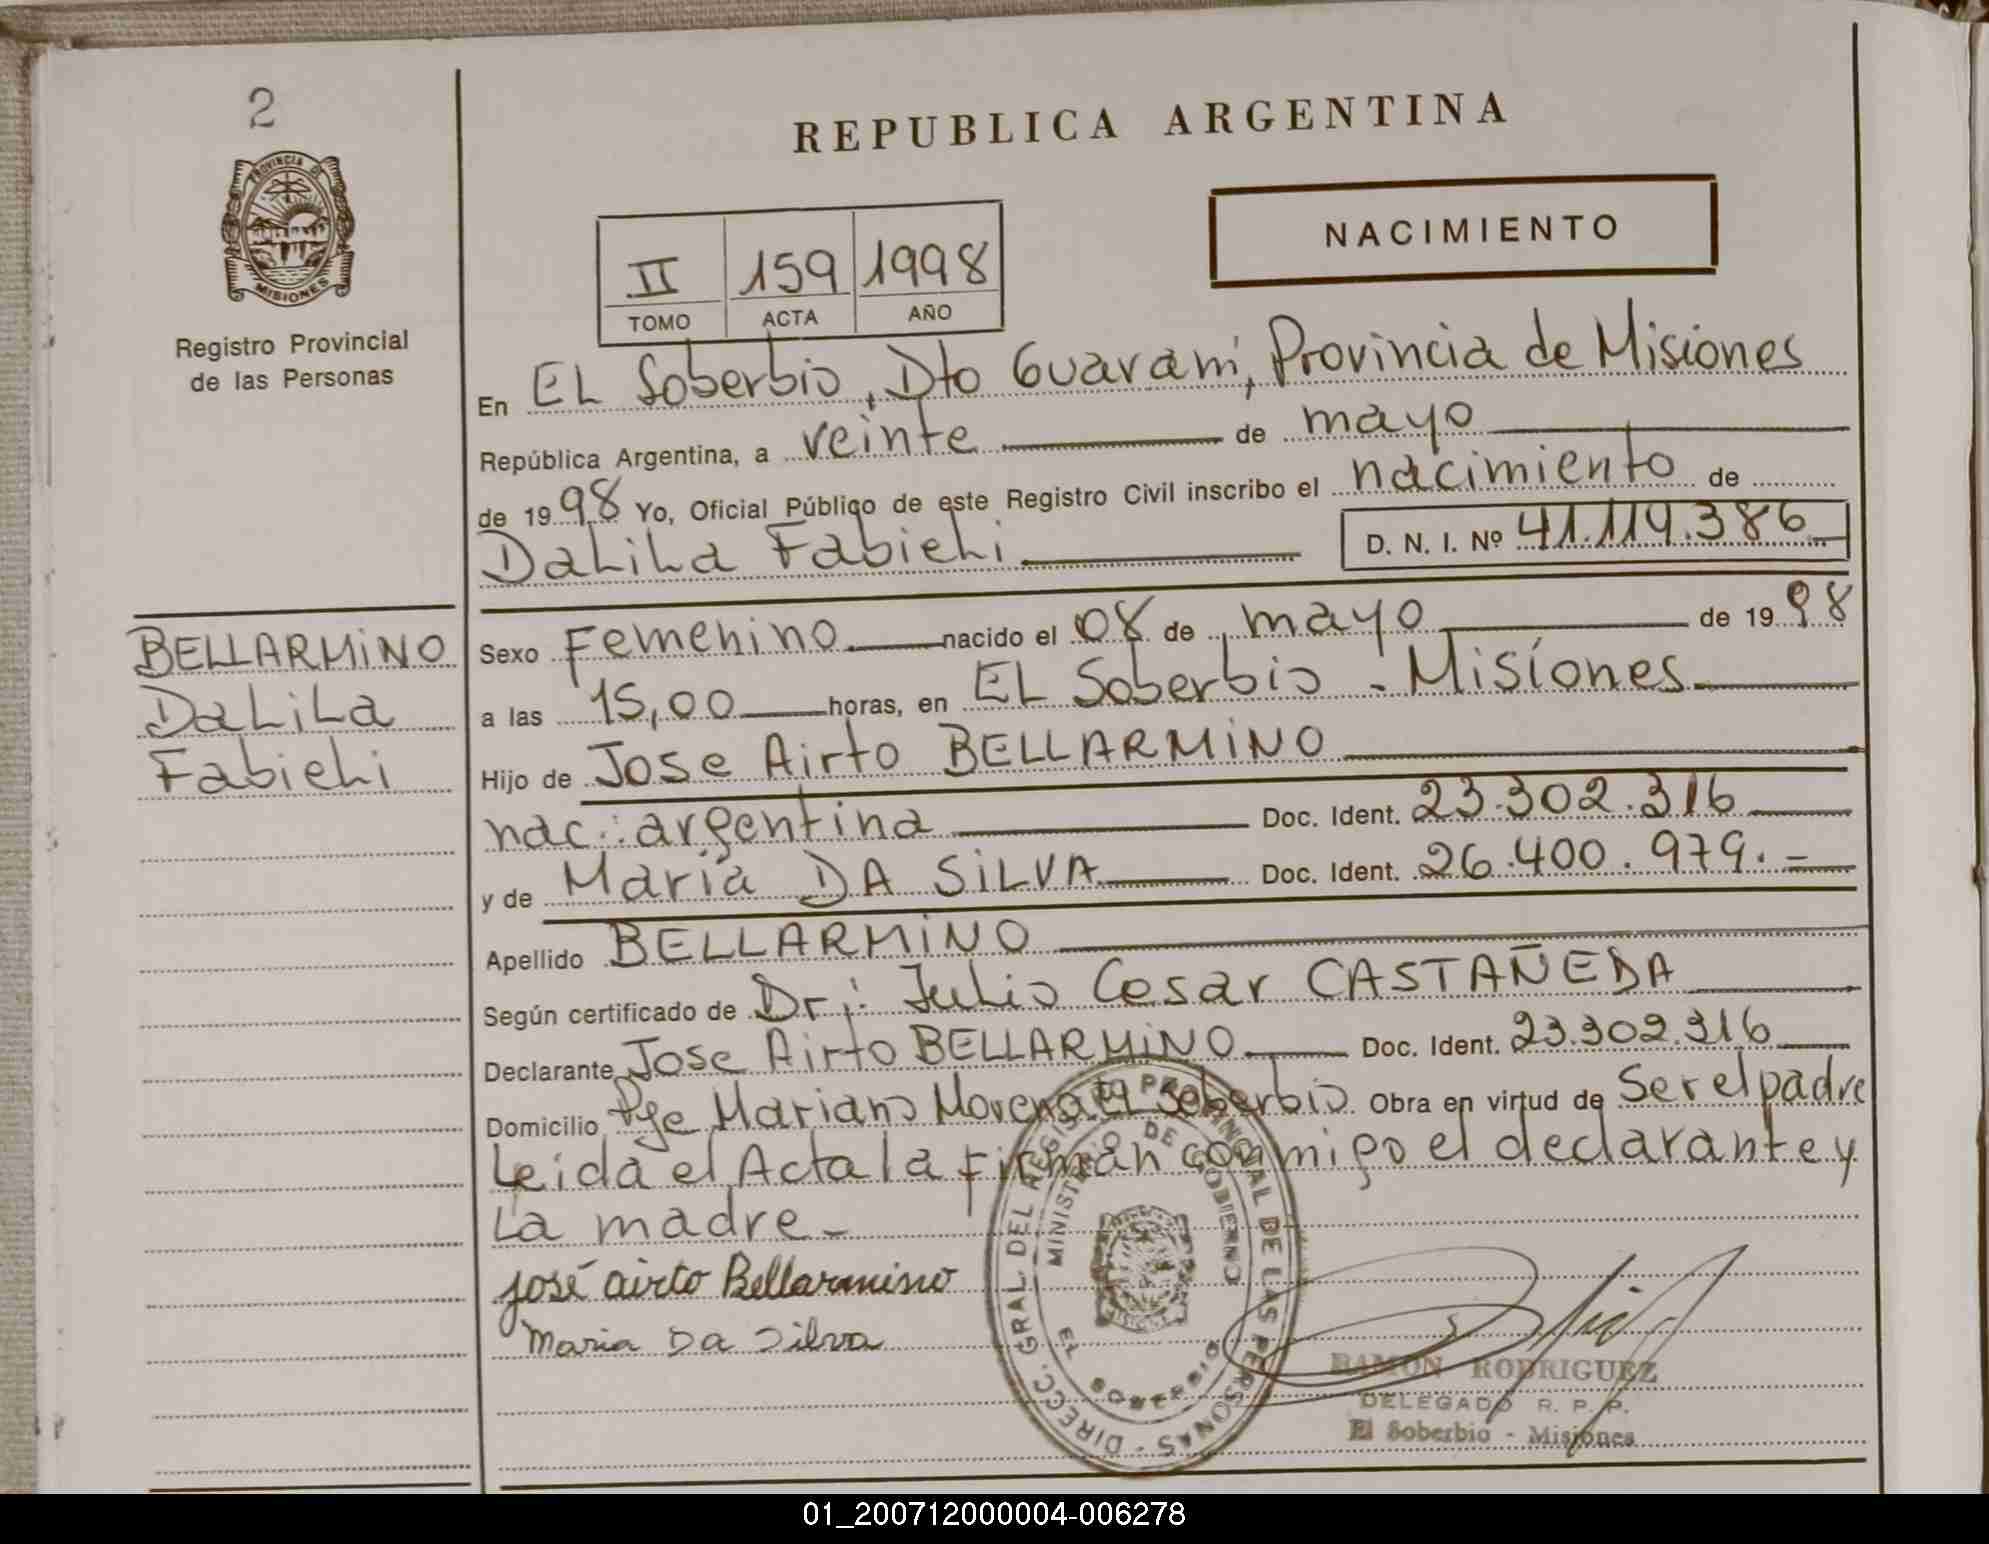 2
PROVINCIA DE
MISIONES
Registro Provincial
de las Personas
REPUBLICA ARGENTINA
NACIMIENTO
II 159 1998
TOMO ACTA AÑO
En EL Soberbio, Dto Guaraní, Provincia de Misiones
República Argentina, a veinte de mayo
de 1998 Yo, Oficial Público de este Registro Civil inscribo el nacimiento de
DaLiLa Fabiehi D. N. I. Nº 41.119.386
BELLARMiNO
DaLiLa
Fabiehi
Sexo Femenino nacido el 08 de mayo de 1998
a las 15,00 horas, en EL Soberbio - Misiones
Hijo de Jose Airto BELLARMiNO
nac: argentina Doc. Ident. 23.302.316
y de Maria DA SiLVA Doc. Ident. 26.400.979.=
Apellido BELLARMiNO
Según certificado de Dr: Julio Cesar CASTAÑEDA
Declarante Jose Airto BELLARMiNO Doc. Ident. 23.302.316
Domicilio Pje Mariano Moreno EL Soberbio Obra en virtud de ser el padre
Leida el Acta la firman conmigo el declarante y
La madre -
José airto Bellarmino
Maria Da Silva
DIRECC. GRAL DEL REGISTRO PROVINCIAL DE LAS PERSONAS -
MINISTERIO DE GOBIERNO
EL SOBERBIO
RAMON RODRIGUEZ
DELEGADO R. P. P.
El Soberbio - Misiones
01_200712000004-006278